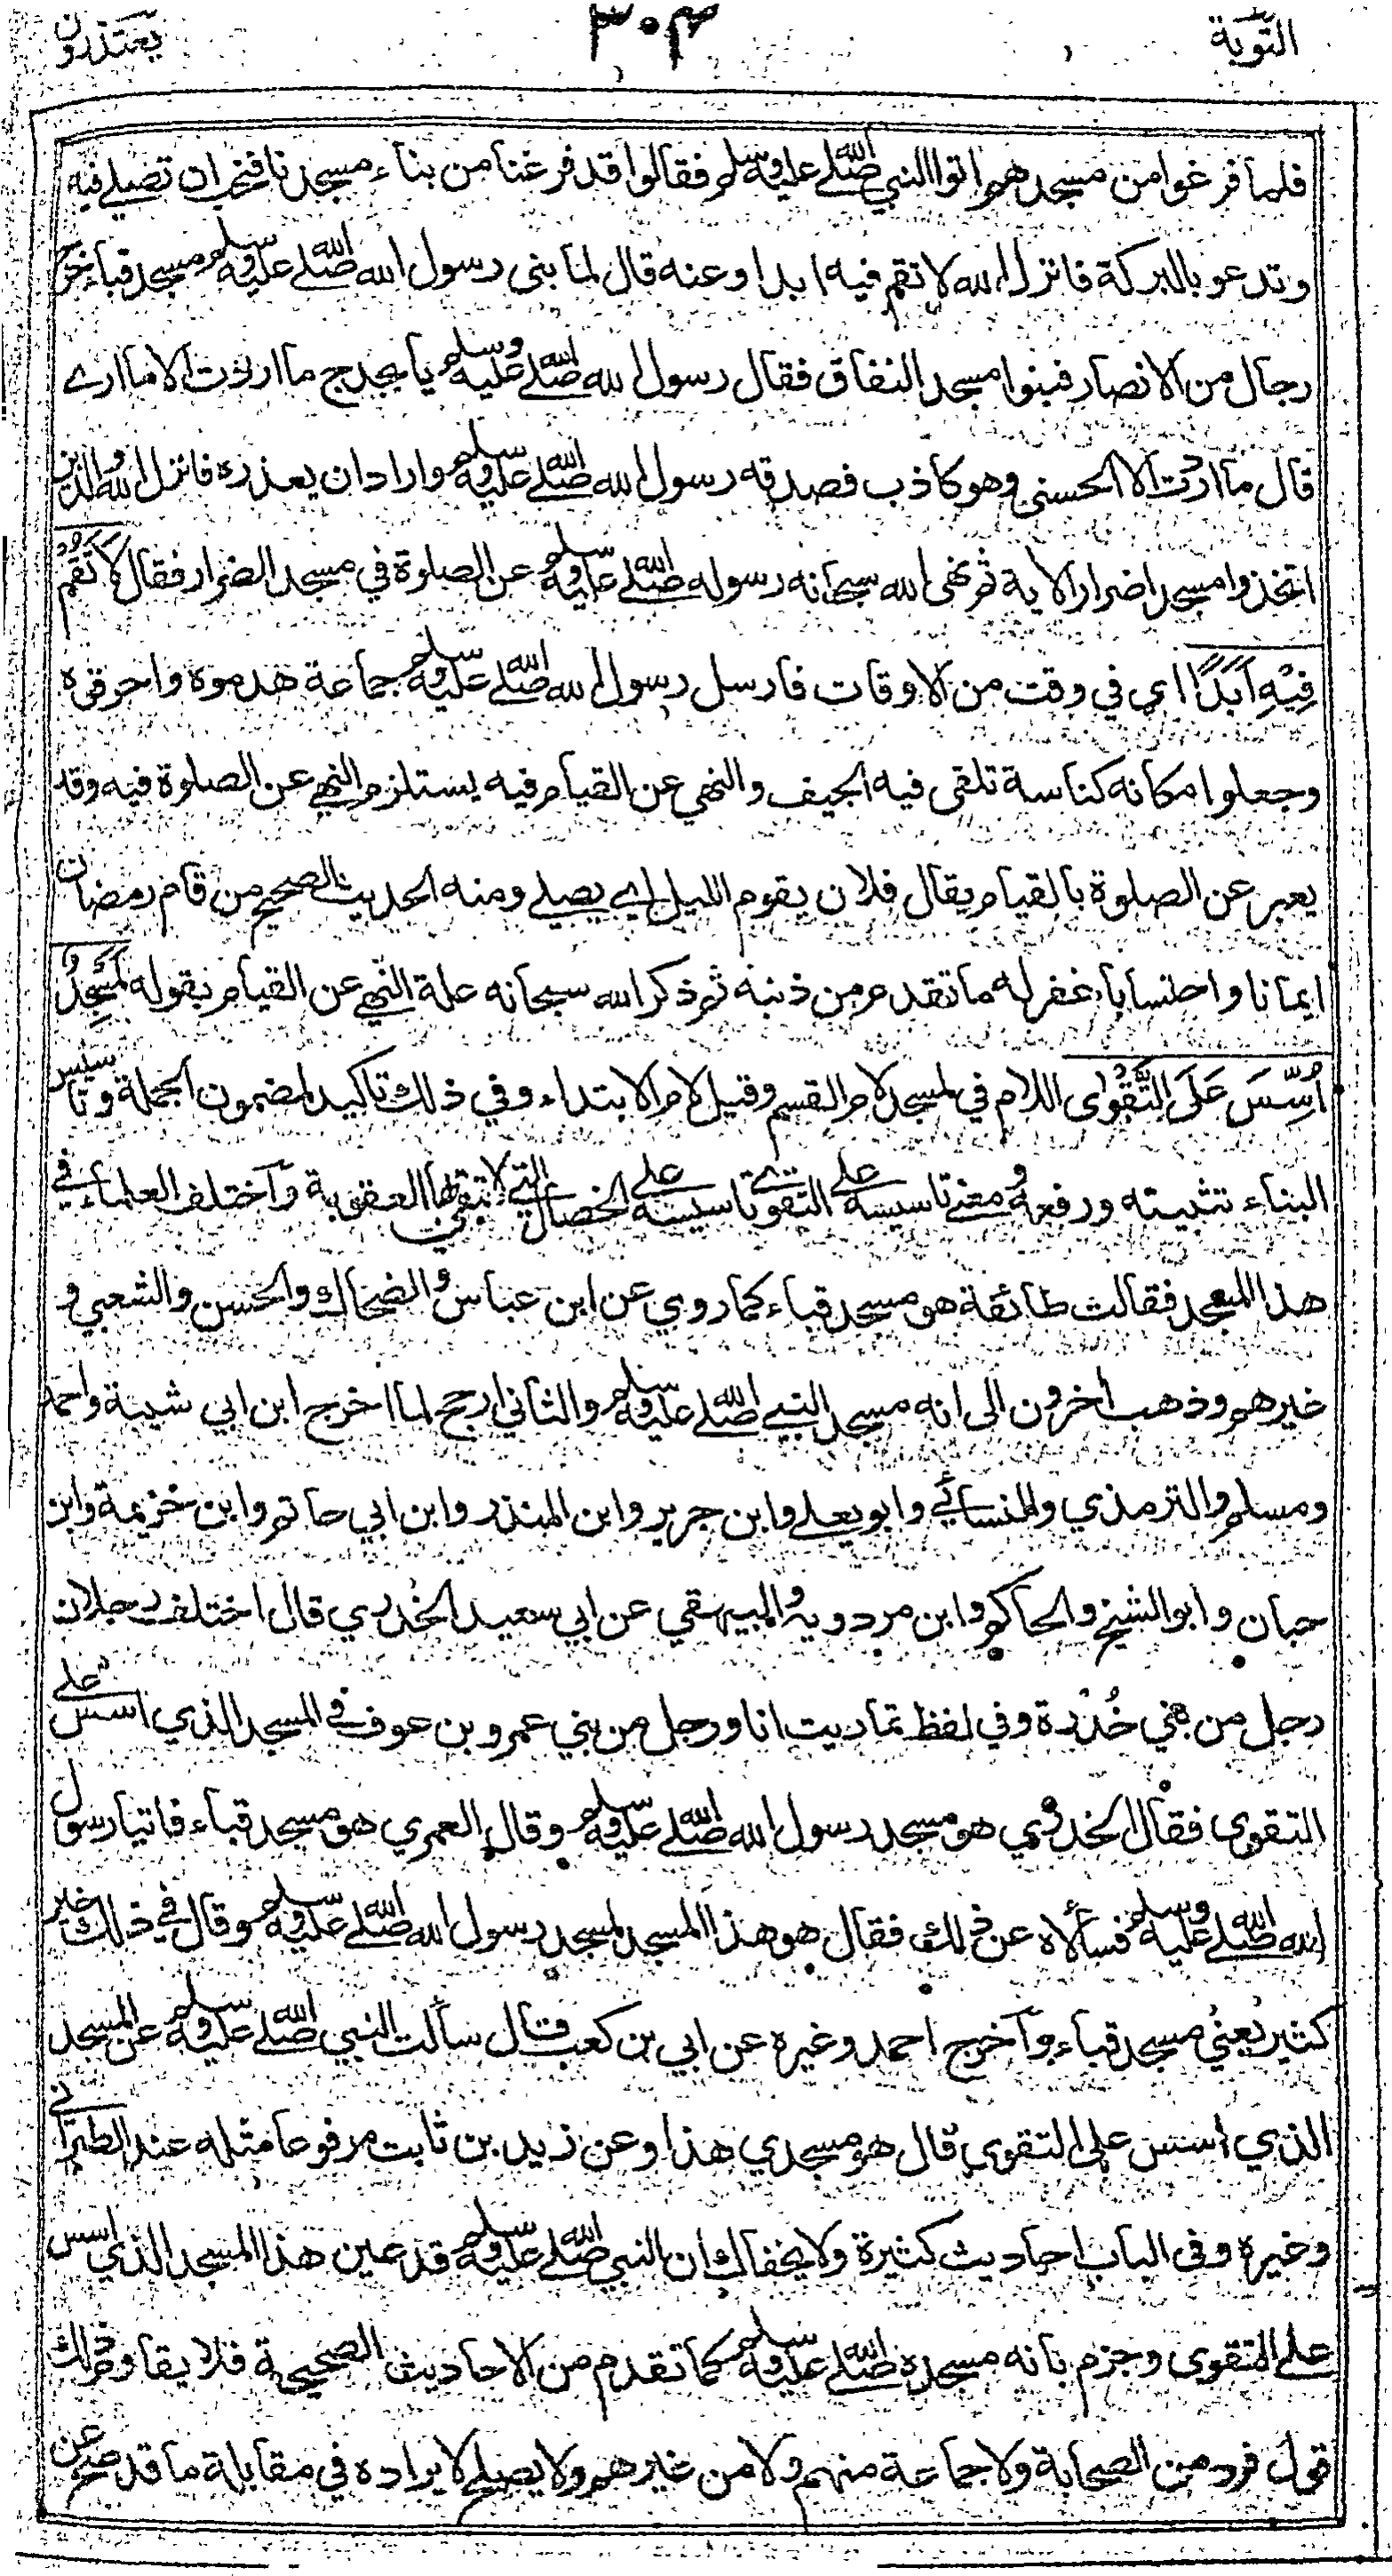 التوبة ٣٠٣ يعتذرون
فلما فرغوا من مسجدهم اتوا النبي صلى الله عليه وسلم فقالوا قد فرغنا من بناء مسجدنا فنحب ان تصلي فيه
وتدعو بالبركة فانزل الله لا تقم فيه ابدا وعنه قال لما بنى رسول الله صلى الله عليه وسلم مسجد قباء خرج
رجال من الانصار فبنوا مسجد النفاق فقال رسول الله صلى الله عليه وسلم يا بجدج ما اردت الا ما ارے
قال ما اردت الا الحسنى وهو كاذب فصدقه رسول الله صلى الله عليه وسلم واراد ان يعذره فانزل الله والذين
اتخذوا مسجدا ضرارا الاية ثم نهى الله سبحانه رسوله صلى الله عليه وسلم عن الصلوة في مسجد الضرار فقال لَا تَقُمْ
فِيْهِ اَبَدًا اي في وقت من الاوقات فارسل رسول الله صلى الله عليه وسلم جماعة هدموه واحرقوه
وجعلوا مكانه كناسة تلقى فيه الجيف والنهي عن القيام فيه يستلزم النهي عن الصلوة فيه وقد
يعبر عن الصلوة بالقيام يقال فلان يقوم الليل اي يصلي ومنه الحديث الصحيح من قام رمضان
ايمانا واحتسابا غفر له ما تقدم من ذنبه ثم ذكر الله سبحانه علة النهي عن القيام بقوله لَمَسْجِدٌ
اُسِّسَ عَلَى التَّقْوٰى اللام في لمسجد لام القسم وقيل لام الابتداء وفي ذلك تاكيد لمضمون الجملة وتاسيس
البناء تثبيته ورفعه ومعنى تاسيسه على التقوى تاسيسه على الخصال التي تتقى بها العقوبة وآختلف العلماء في
هذا المسجد فقالت طائفة هو مسجد قباء كما روي عن ابن عباس والضحاك والحسن والشعبي و
غيرهم وذهب اخرون الى انه مسجد النبي صلى الله عليه وسلم والثاني ارجح لما اخرج ابن ابي شيبة واحمد
ومسلم والترمذي والنسائي وابو يعلى وابن جرير وابن المنذر وابن ابي حاتم وابن خزيمة وابن
حبان وابو الشيخ والحاكم وابن مردويه والبيهقي عن ابي سعيد الخدري قال اختلف رجلان
رجل من بني خُدْرة وفي لفظ تماريت انا ورجل من بني عمرو بن عوف في المسجد الذي اسس على
التقوى فقال الخدري هو مسجد رسول الله صلى الله عليه وسلم وقال العمري هو مسجد قباء فاتيا رسول
الله صلى الله عليه وسلم فسألاه عن ذلك فقال هو هذا المسجد لمسجد رسول الله صلى الله عليه وسلم وقال في ذلك خير
كثير يعني مسجد قباء وآخرج احمد وغيره عن ابي بن كعب قال سألت النبي صلى الله عليه وسلم عن المسجد
الذي اسس على التقوى قال هو مسجدي هذا وعن زيد بن ثابت مرفوعا مثله عند الطبراني
وغيره وفي الباب احاديث كثيرة ولا يخفاك ان النبي صلى الله عليه وسلم قد عين هذا المسجد الذي اسس
على التقوى وجزم بانه مسجده صلى الله عليه وسلم كما تقدم من الاحاديث الصحيحة فلا يقاوم ذلك
قول فرد من الصحابة ولا جماعة منهم ولا من غيرهم ولا يصلح لايراده في مقابلة ما قد صح عن